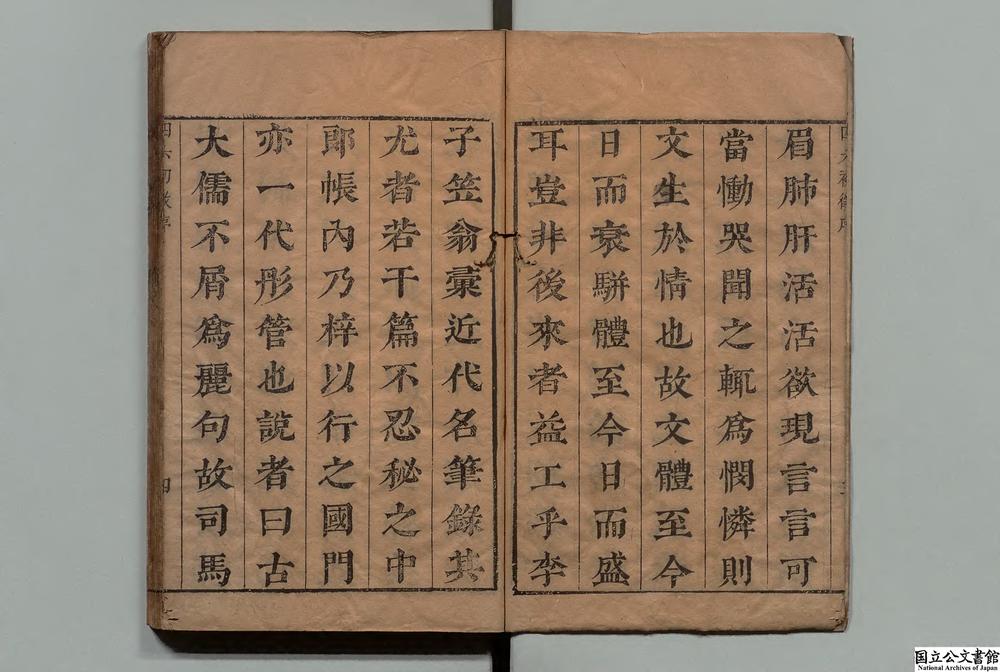 眉肺肝活活欲現言言可
當慟哭聞之輒爲憫憐則
文生於情也故文體至今
日而衰駢體至今日而盛
耳豈非後來者益工乎李
子笠翁彙近代名筆錄其
尤者若干篇不忍秘之中
郎帳內乃梓以行之國門
亦一代彤管也說者曰古
大儒不屑爲麗句故司馬
国立公文書館
National Archives of Japan